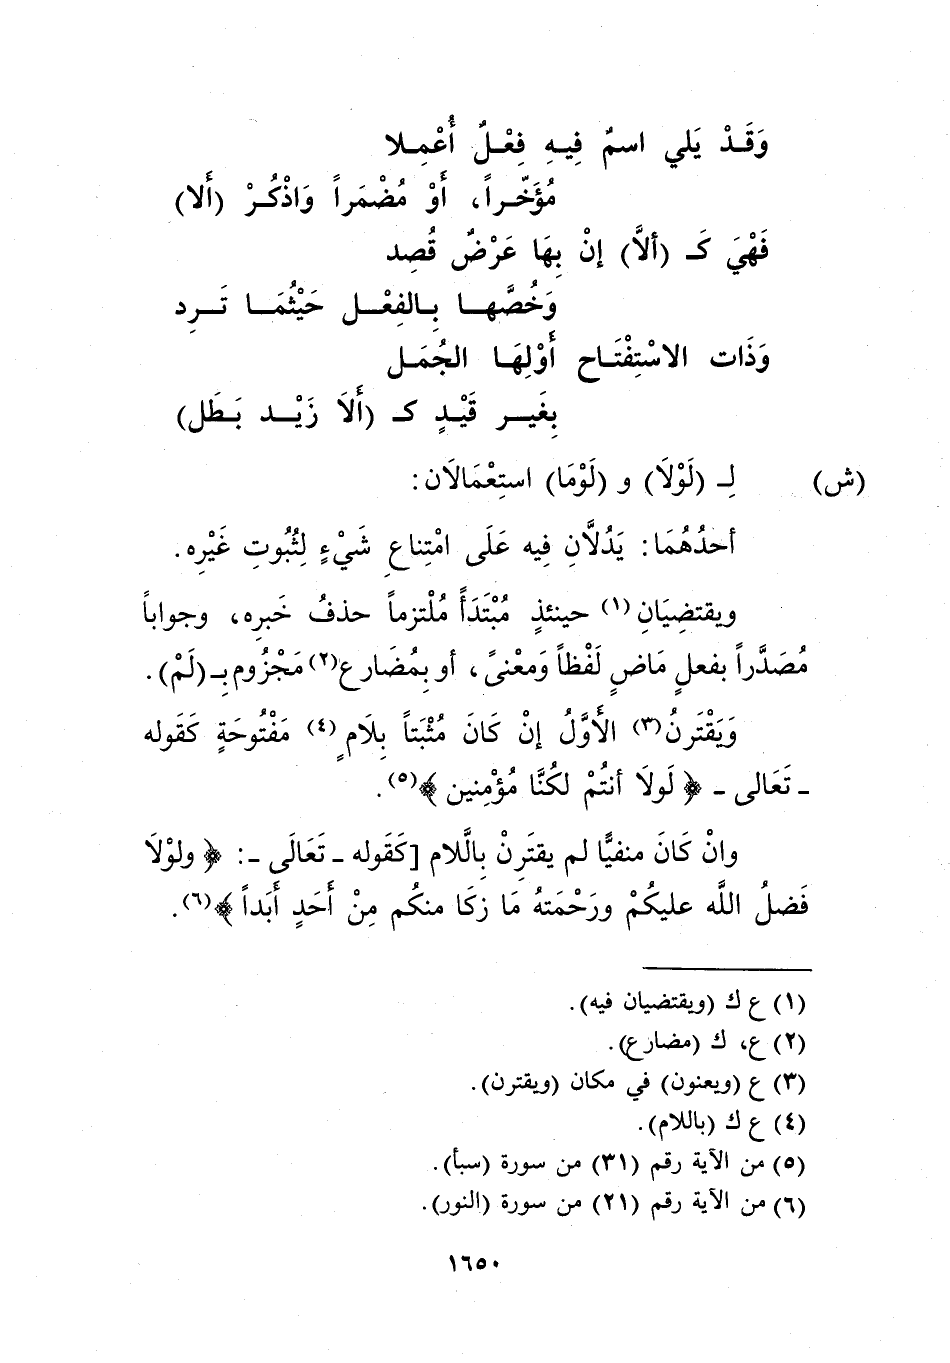 وَقَـدْ يَلي اسمٌ فِيـهِ فِعْـلٌ أُعْمِـلا
مُؤَخّـراً، أَوْ مُضْمَراً وَاذْكُـرْ (أَلا)
فَهْيَ كَـ (ألاَّ) إنْ بِهَا عَرْضٌ قُصِد
وَخُصَّهـا بِـالفِعْـل حَيْثُمَـا تَـرِد
وَذَات الاسْتِفْتَـاح أَوْلِهَـا الجُمَـل
بِغَيـر قَيْـدٍ كـ (أَلاَ زَيْـد بَـطَل)
(ش) لِـ (لَوْلاَ) و (لَوْمَا) استِعْمَالاَن:
أحدُهُمَا: يَدُلاَّنِ فِيه عَلَى امْتِناعِ شَيْءٍ لِثُبُوتِ غَيْرِه.
ويقتضِيَانِ(١) حينئذٍ مُبْتَدَأً مُلْتزماً حذفُ خَبرِه، وجواباً
مُصَدَّراً بفعلٍ مَاضٍ لَفْظاً وَمعْنىً، أو بمُضَارعٍ(٢) مَجْزُوم بـ(لَمْ).
وَيَقْتَرنُ(٣) الأَوَّلُ إنْ كَانَ مُثْبَتاً بِلَامٍ(٤) مَفْتُوحَةٍ كَقَوله
ـ تَعَالى ـ ﴿ لَولاَ أنتُمْ لكُنَّا مُؤْمِنين ﴾(٥).
وانْ كَانَ منفيًّا لم يقتَرِنْ بِالَّلام [كَقَوله ـ تَعَالَى ـ: ﴿ ولوْلاَ
فَضلُ اللَّه عليكُمْ ورَحْمَتهُ مَا زكَا منكُم مِنْ أَحَدٍ أَبَداً ﴾(٦).
(١) ع ك (ويقتضيان فيه).
(٢) ع، ك (مضارع).
(٣) ع (ويعنون) في مكان (ويقترن).
(٤) ع ك (باللام).
(٥) من الآية رقم (٣١) من سورة (سبأ).
(٦) من الآية رقم (٢١) من سورة (النور).
١٦٥٠